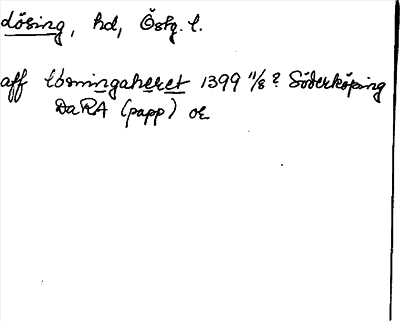 Lösing, hd, Östg. l.
aff Løsningaheret 1399 11/8 ? Söderköping
DaRA (papp) or